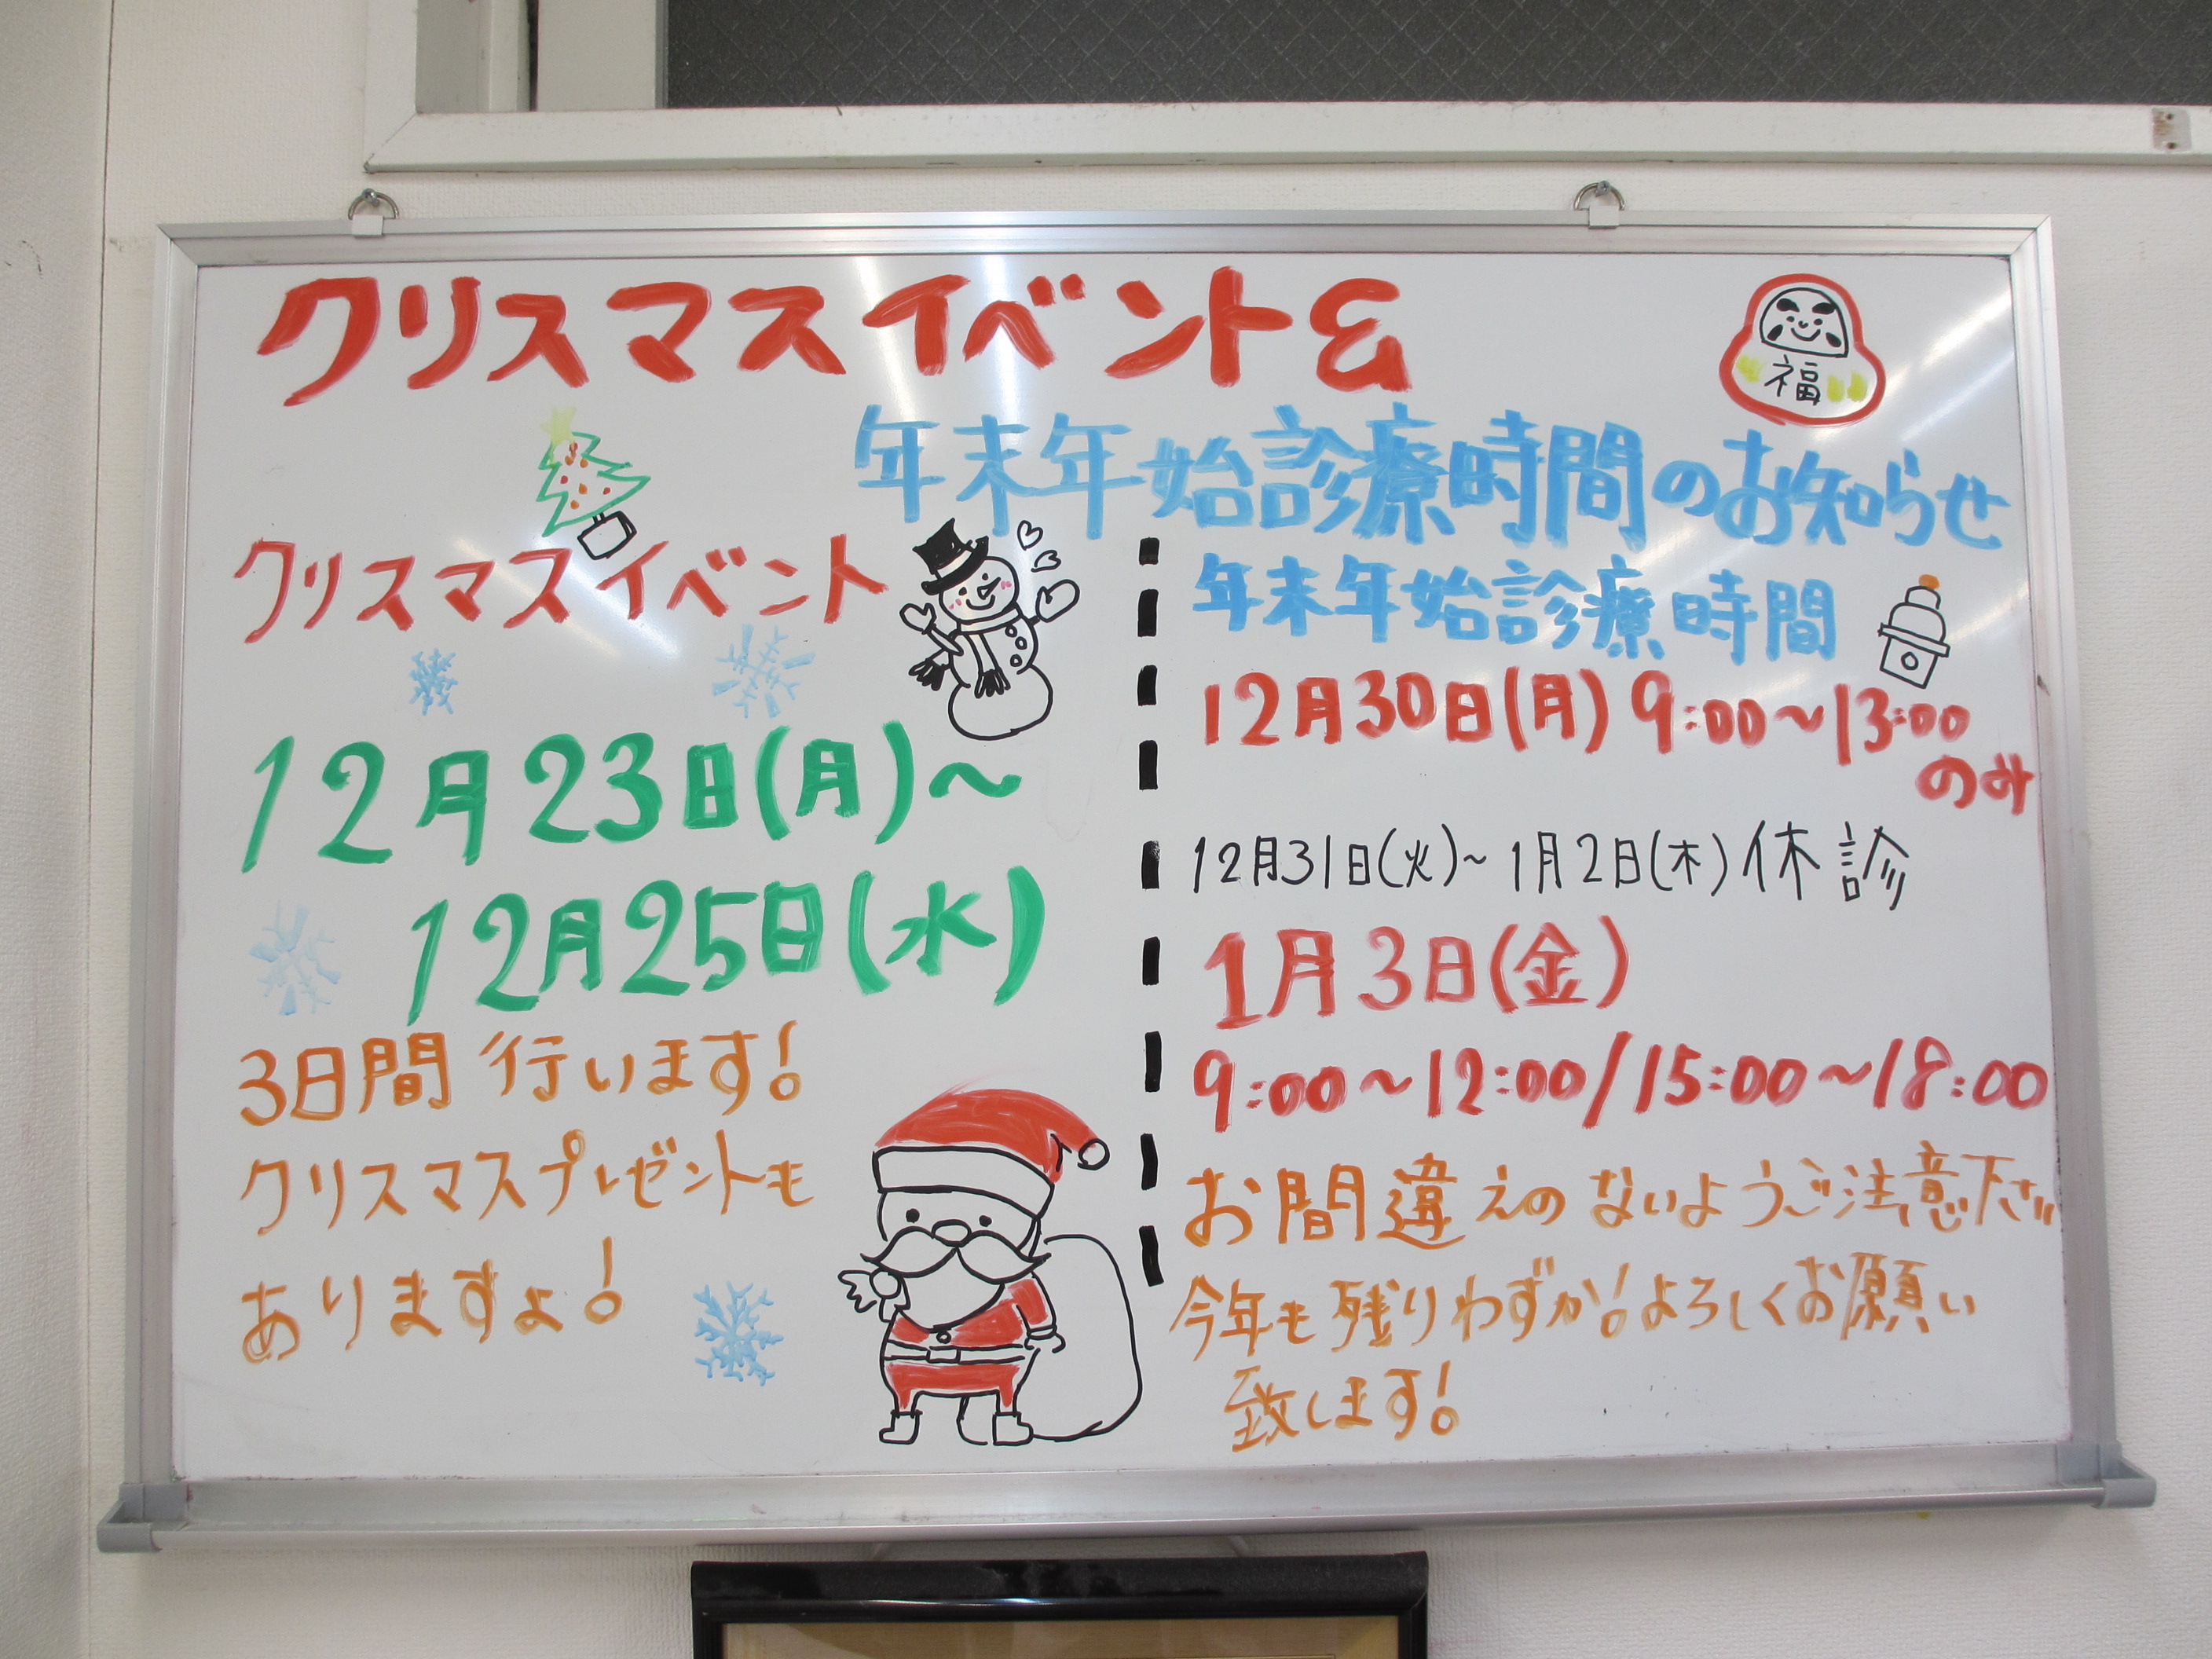 クリスマスイベント&
福
年末年始診療時間のお知らせ
クリスマスイベント
12月23日(月)~
12月25日(水)
3日間行います!
クリスマスプレゼントも
ありますよ!
年末年始診療時間
12月30日(月) 9:00~13:00
のみ
12月31日(火)~1月2日(木)休診
1月3日(金)
9:00~12:00/15:00~18:00
お間違えのないようご注意下さい
今年も残りわずか!よろしくお願い
致します!